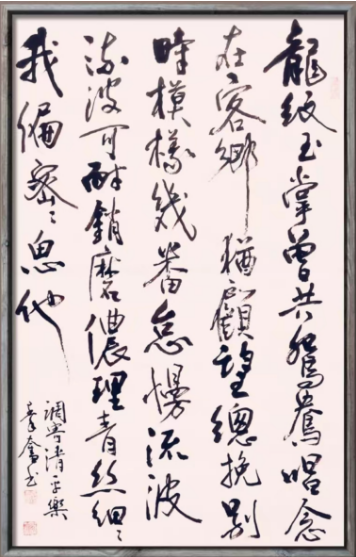 龍紋玉掌曾共鴛鴦唱念
在客鄉猶顧望總挽別
時模樣幾番怠慢流波
流波可耐銷磨儂理青絲細〻
我偏密〻思他
調寄清平樂